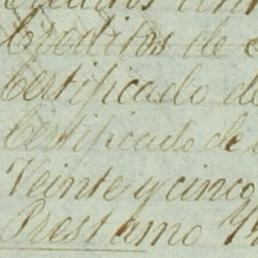 Creditos de
Certificado de
Certificado de
Veinte y cinco
Prestamo